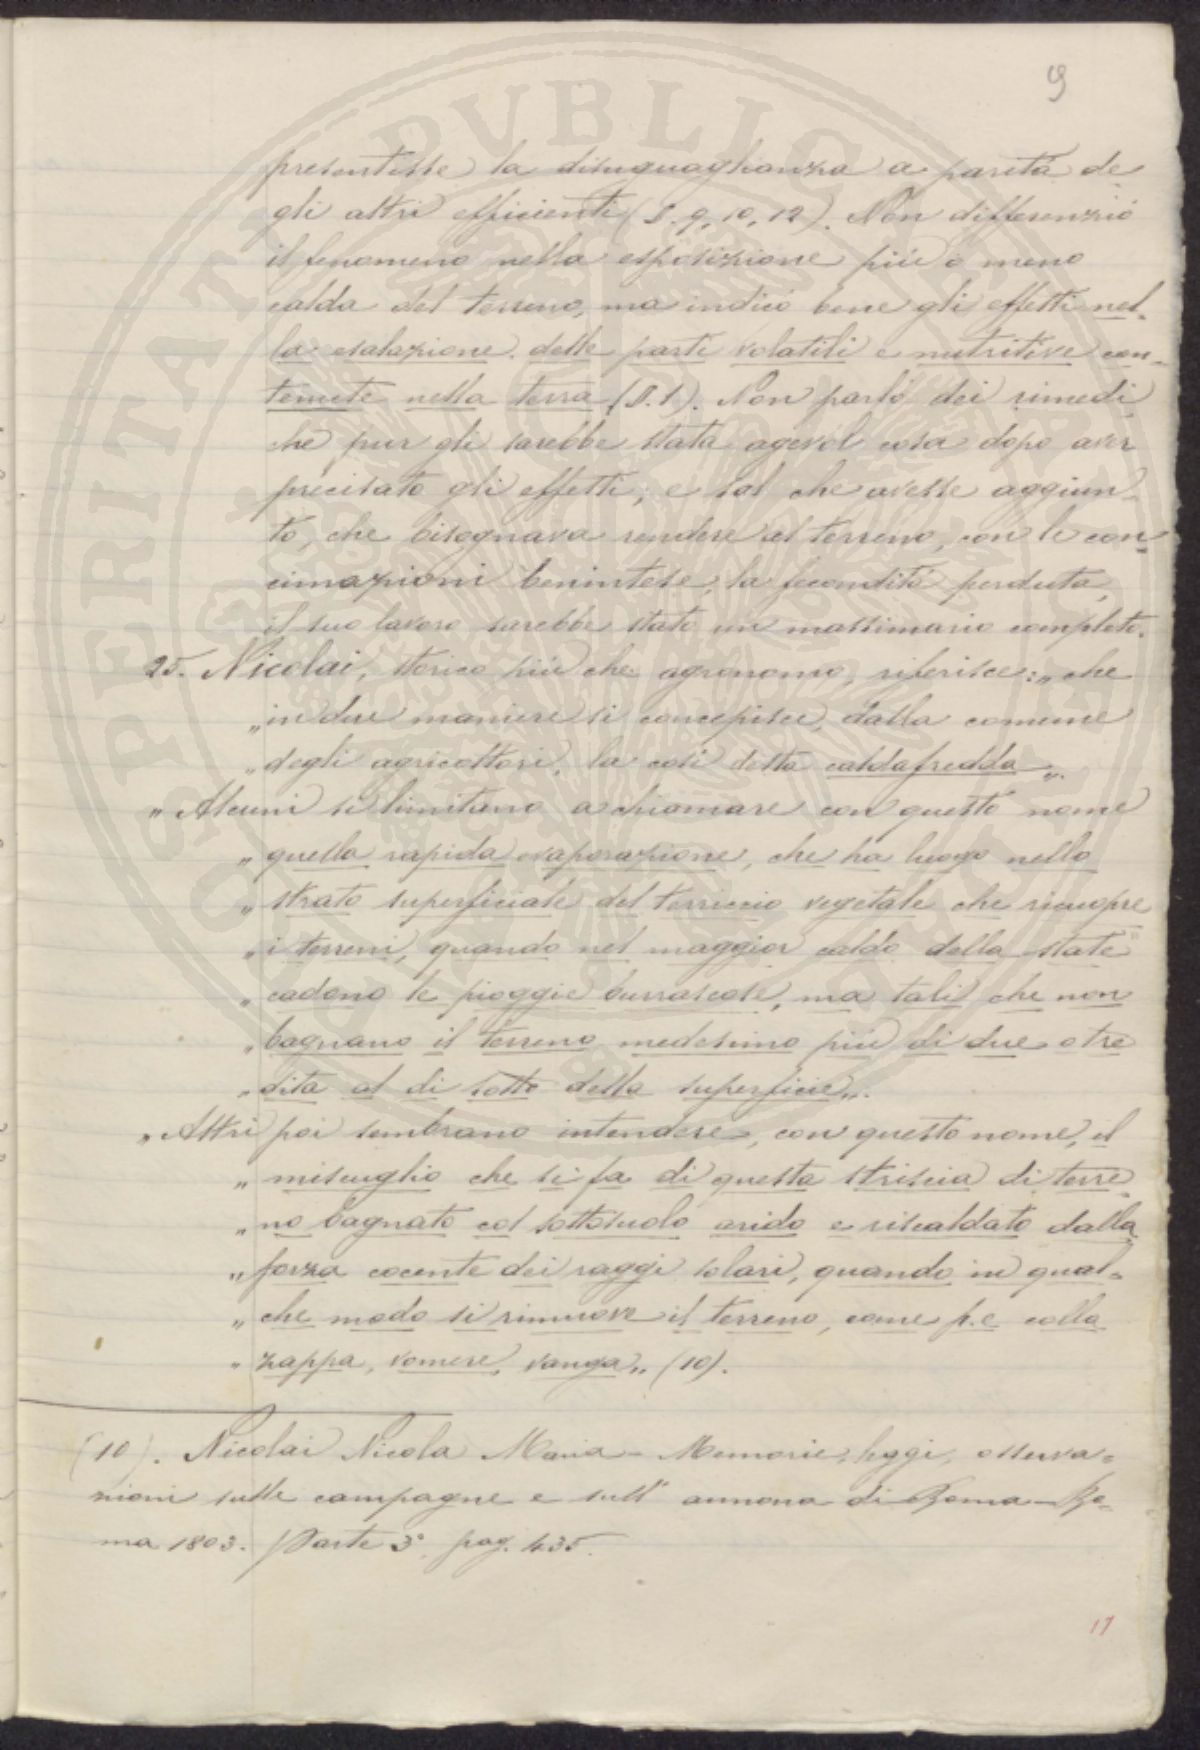 9
presentisse la disuguaglianza a parità de
gli altri efficienti (§. 9, 10, 12). Non differenziò
il fenomeno nella esposizione più o meno
calda del terreno, ma indicò bene gli effetti nel-
la esalazione delle parti volatili e nutritive con-
tenute nella terra (§. 1). Non parlò dei rimedi,
che pur gli sarebbe stata agevol cosa dopo aver
precisato gli effetti; e sol che avesse aggiun-
to, che bisognava rendere al terreno, con le con-
cimazioni benintese, la fecondità perduta,
il suo lavoro sarebbe stato un massimario completo.
25. Nicolai, storico più che agronomo, riferisce: „ che
„ in due maniere si concepisce, dalla comune
„ degli agricoltori, la così detta caldafredda „.
„ Alcuni si limitano a chiamare con questo nome
„ quella rapida evaporazione, che ha luogo nello
„ strato superficiale del terriccio vegetale che ricuopre
„ i terreni, quando nel maggior caldo della state
„ cadono le pioggie burrascose, ma tali che non
„ bagnano il terreno medesimo più di due o tre
„ dita al di sotto della superficie „.
„ Altri poi sembrano intendere, con questo nome, il
„ miscuglio che si fa di questa striscia di terre-
„ no bagnato col sottosuolo arido e riscaldato dalla
„ forza cocente dei raggi solari, quando in qual-
„ che modo si rimuove il terreno, come p. e colla
„ zappa, vomere, vanga „ (10).
(10). Nicolai Nicola Maria - Memorie, leggi, osserva-
zioni sulle campagne e sull' annona di Roma - Ro-
ma 1803. Parte 3ª, pag. 435.
17
PERITATI PVBLIC